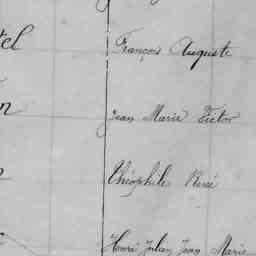 tel François Auguste
n Jean Marie Victor
Théophile René
Henri Julien Jean Marie